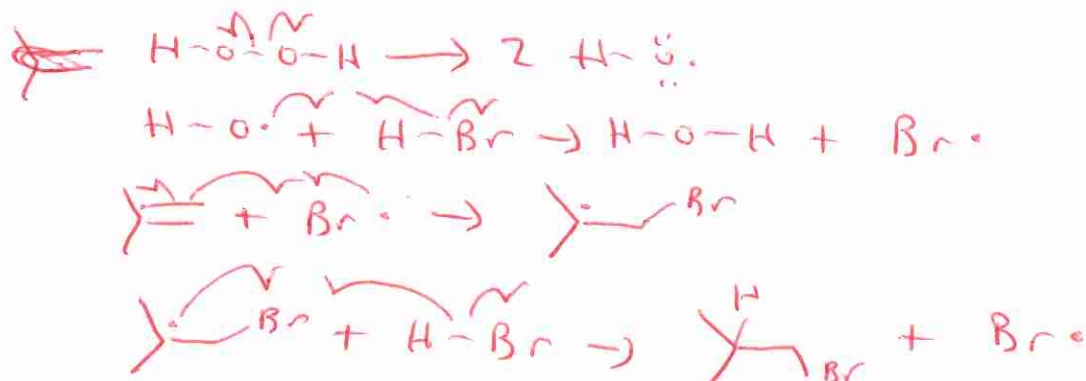 H-O-O-H → 2 H-Ö·
H-O· + H-Br → H-O-H + Br·
+ Br· → Br
Br + H-Br → H Br + Br·